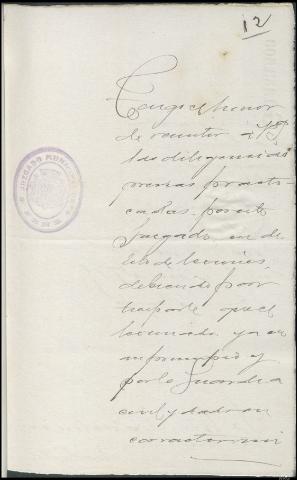 12
Tengo el honor
de remitir á VS
las diligencias
previas practi-
cadas por este
Juzgado en de
lito de lesiones,
debiendo par
ticiparle que el
lesionado ya
y
por la Guardia
civil y dado
JUZGADO MUNICIPAL